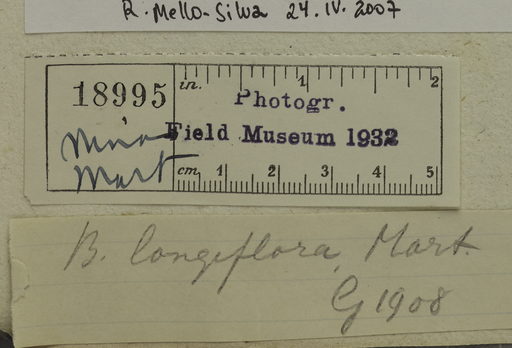 R. Mello-Silva 24.IV.2007
18995
in. 1 2
Photogr.
Field Museum 1932
Mart
cm 1 2 3 4 5
B. longiflora, Mart.
G 1908